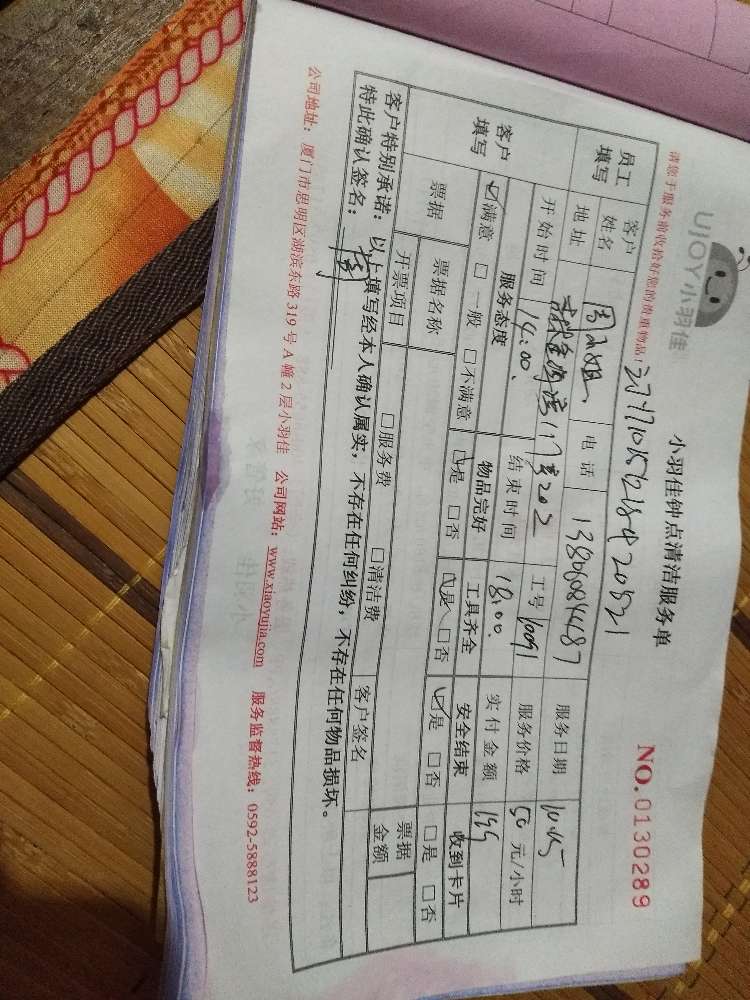 UJOY小羽佳
小羽佳钟点清洁服务单
NO.0130289
请您于服务前收拾好您的贵重物品
员工填写 客户姓名 周小姐 电话 服务日期 10.15
地址 17 202 工号 10091 服务价格 50 元/小时
客户填写 开始时间 14:00 结束时间 18:00 实付金额 199
服务态度 物品完好 工具齐全 安全结束 收到卡片
☑满意 □一般 □不满意 ☑是 □否 ☑是 □否 ☑是 □否 □是 □否
票据 票据名称 客户签名 票据金额
开票项目 □服务费 □清洁费
客户特别承诺：以上填写经本人确认属实，不存在任何纠纷，不存在任何物品损坏。
特此确认签名：
公司地址：厦门市思明区湖滨东路 319 号 A 幢 2 层小羽佳 公司网站：www.xiaoyujia.com 服务监督热线：0592-5888123